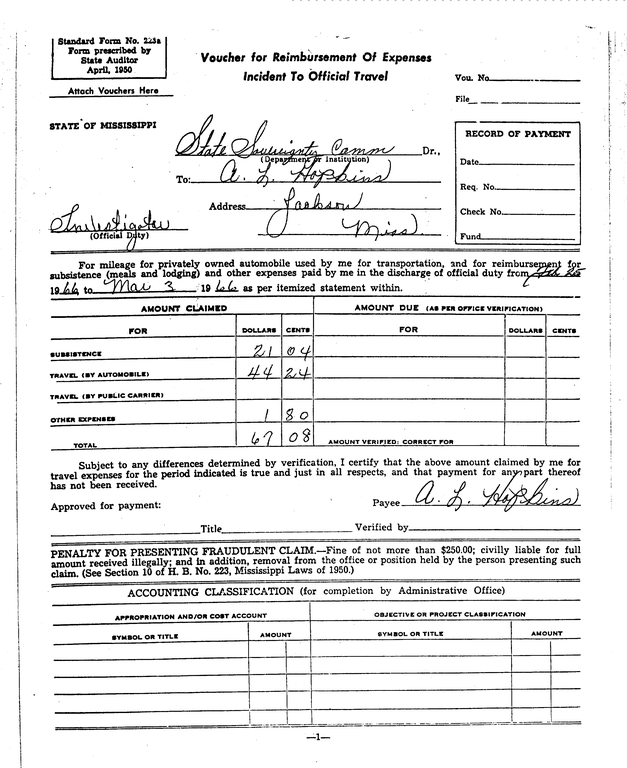 Standard Form No. 223a
Form prescribed by
State Auditor
April, 1950
Attach Vouchers Here
Voucher for Reimbursement Of Expenses
Incident To Official Travel
Vou. No.
File
STATE OF MISSISSIPPI
State Sovereignty Comm Dr.,
(Department or Institution)
To: A. L. Hopkins
Address Jackson
Miss
Investigator
(Official Duty)
RECORD OF PAYMENT
Date
Req. No.
Check No.
Fund
For mileage for privately owned automobile used by me for transportation, and for reimbursement for
subsistence (meals and lodging) and other expenses paid by me in the discharge of official duty from Feb 25
1966 to Mar 3 1966 as per itemized statement within.
AMOUNT CLAIMED AMOUNT DUE (AS PER OFFICE VERIFICATION)
FOR DOLLARS CENTS FOR DOLLARS CENTS
SUBSISTENCE 21 04
TRAVEL (BY AUTOMOBILE) 44 24
TRAVEL (BY PUBLIC CARRIER)
OTHER EXPENSES 1 80
TOTAL 67 08 AMOUNT VERIFIED: CORRECT FOR
Subject to any differences determined by verification, I certify that the above amount claimed by me for
travel expenses for the period indicated is true and just in all respects, and that payment for any part thereof
has not been received.
Payee A. L. Hopkins
Approved for payment:
Title Verified by
PENALTY FOR PRESENTING FRAUDULENT CLAIM.—Fine of not more than $250.00; civilly liable for full
amount received illegally; and in addition, removal from the office or position held by the person presenting such
claim. (See Section 10 of H. B. No. 223, Mississippi Laws of 1950.)
ACCOUNTING CLASSIFICATION (for completion by Administrative Office)
APPROPRIATION AND/OR COST ACCOUNT OBJECTIVE OR PROJECT CLASSIFICATION
SYMBOL OR TITLE AMOUNT SYMBOL OR TITLE AMOUNT
—1—